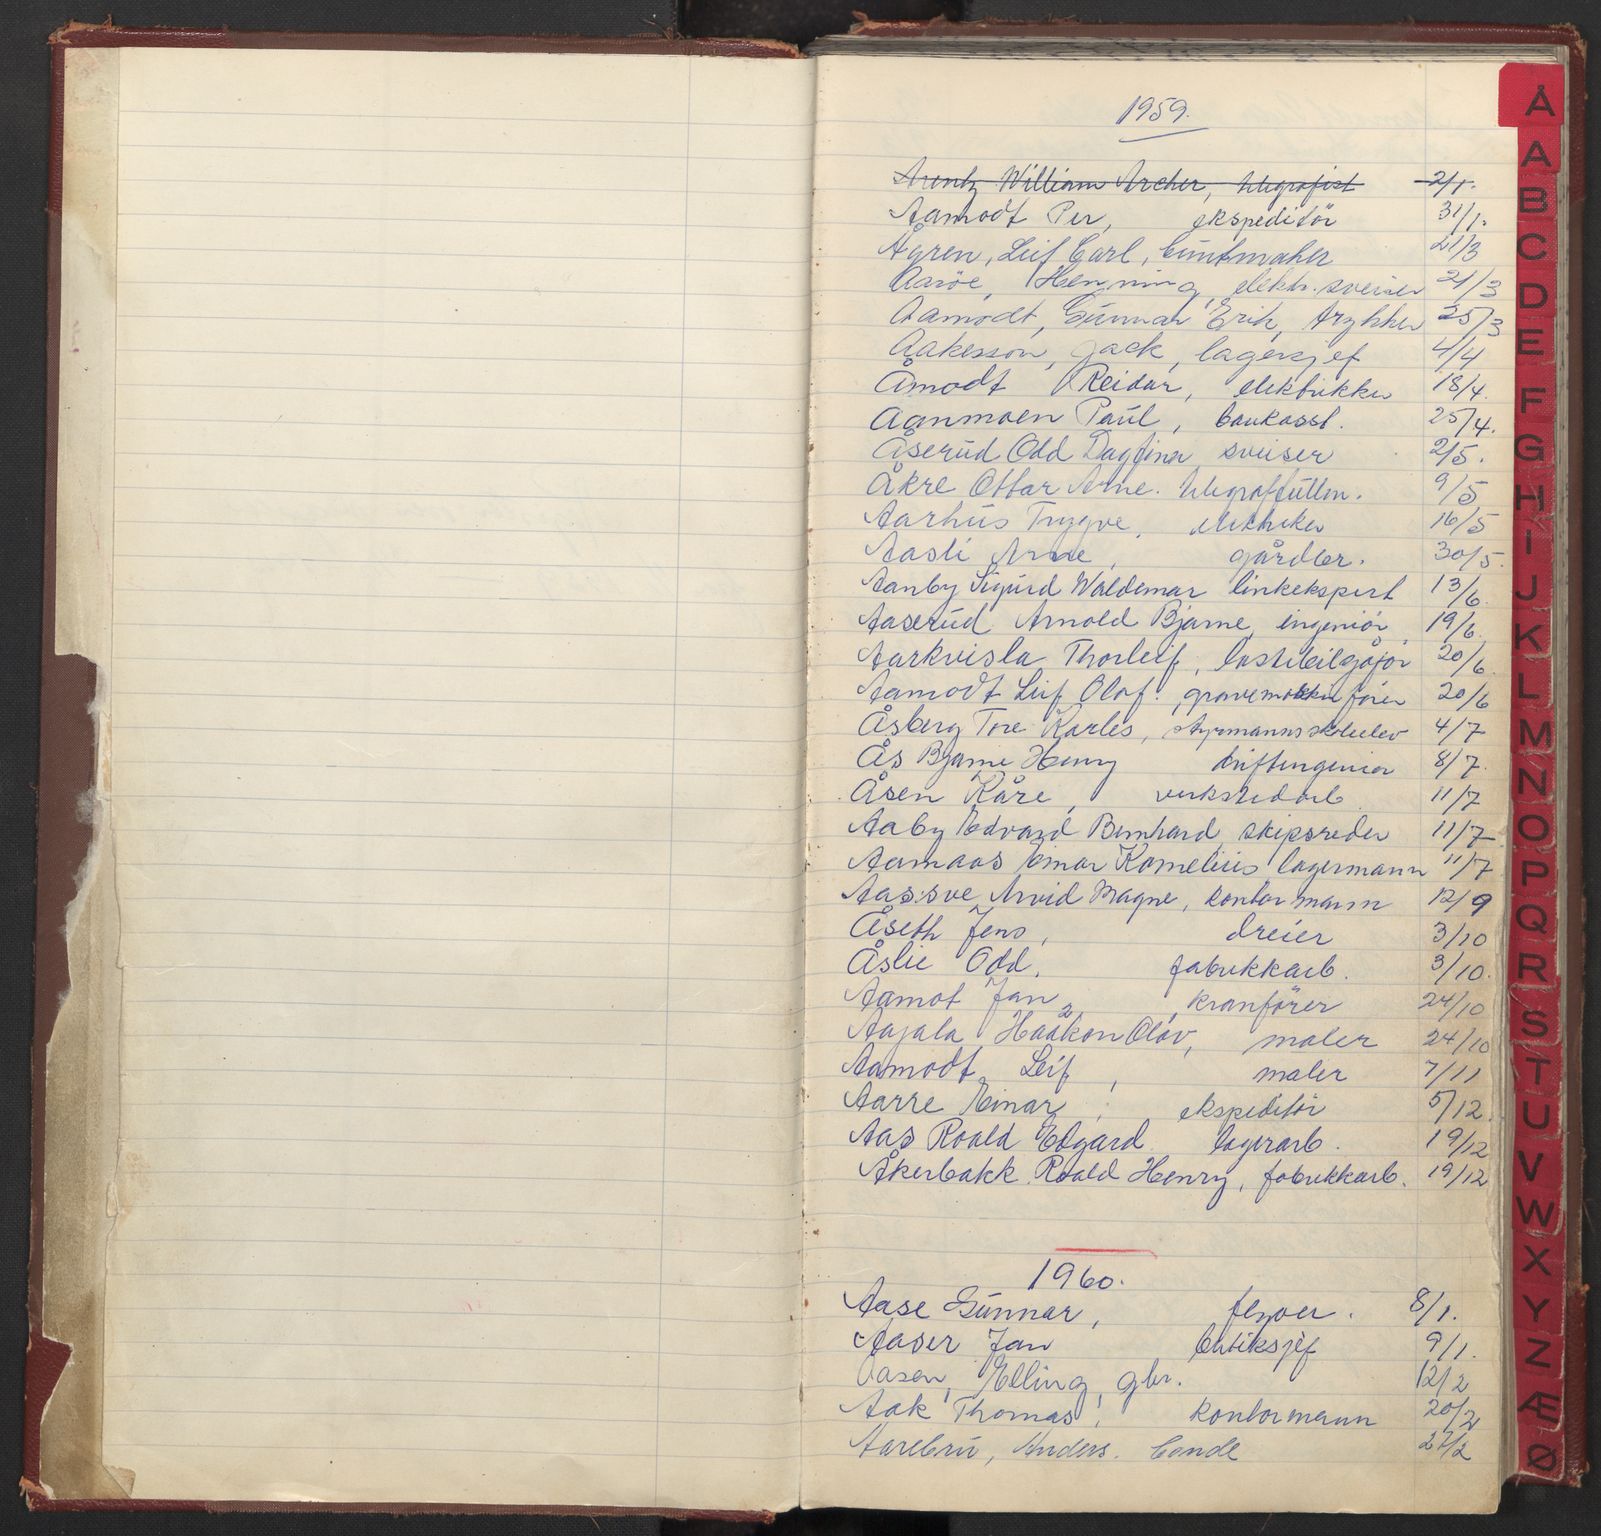 1959.
Arentz William Archer, telegrafist 2/1.
Aamodt Per, ekspeditör 31/1.
Ågren, Leif Carl, buntmaker 21/3
Aaröe, Henning, elektr. sveiser 21/3
Aamodt, Gunnar Erik, trykker 25/3
Aakesson, Jack, lagersjef 4/4
Åmodt Reidar, elektriker 18/4.
Aanmoen Paul, bankasst. 25/4.
Åserud Odd Dagfinn sveiser 2/5.
Åkre Ottar Arne. telegraffullm. 9/5
Aarhus Trygve, elektriker 16/5
Aasli Arne, gårdbr. 30/5.
Aanby Sigurd Waldemar linkekspert 13/6.
Aaserud Arnold Bjarne, ingeniör 19/6.
Aarkvisla Thorleif, lastebilsjåför 20/6.
Aamodt Leif Olaf. gravemaskinförer 20/6
Åsberg Tore Karles, styrmannsskoleelev 4/7
Ås Bjarne Henry driftsingeniör 8/7.
Åsen Kåre, verkstedarb. 11/7
Aaby Edvard Bernhard, skipsreder 11/7
Aamaas Einar Kornelius lagermann 11/7
Aassve Arvid Magne, kontormann 12/9
Åseth Jens, dreier 3/10
Åslie Odd, fabrikkarb. 3/10.
Aamot Jan, kranförer 24/10
Aajala Haakon Olav, maler 24/10
Aamodt Leif, maler 7/11
Aarre Einar, ekspeditör 5/12.
Aas Roald Edgard lagerarb. 19/12
Åkerbakk Roald Henry, fabrikkarb. 19/12
1960.
Aase Gunnar, flyver. 8/1.
Aaser Jan butiksjef 9/1.
Aasen, Elling, gbr. 12/2
Aak Thomas, kontormann 20/2
Aarebru, Anders. bonde 27/2
Å
A
B
C
D
E
F
G
H
I
J
K
L
M
N
O
P
Q
R
S
T
U
V
W
X
Y
Z
Æ
Ø